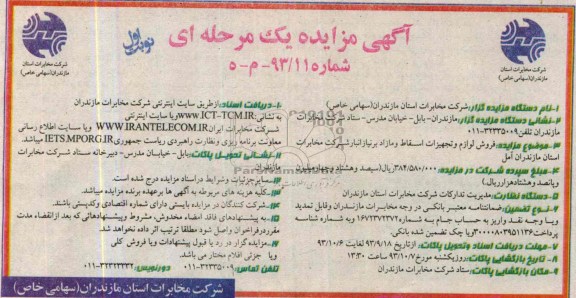 آگهی مزایده یک مرحله ای
نوبت اول
شماره ۹۳/۱۱- م-ه
شرکت مخابرات استان
مازندران (سهامی خاص)
شرکت مخابرات استان
مازندران (سهامی خاص)
۱-نام دستگاه مزایده گزار:شرکت مخابرات استان مازندران(سهامی خاص)
۲-نشانی دستگاه مزایده گزار:مازندران- بابل- خیابان مدرس- ستاد شرکت مخابرات
مازندران تلفن:۳۲۳۳۵۰۰۹-۰۱۱
۳-موضوع مزایده: فروش لوازم وتجهیزات اسقاط ومازاد برنیازانبار شرکت مخابرات
استان مازندران
۴-مبلغ سپرده شرکت در مزایده:۳۸۴/۵۸۰/۰۰۰ریال(سیصد وهشتادوچهارمیلیون
وپانصد وهشتادهزارریال)
۵-دستگاه نظارت:مدیریت تدارکات شرکت مخابرات استان مازندران
۶-نوع تضمین:ضمانتنامه معتبر بانکی در وجه مخابرات مازندران وقابل تمدید
ویا وجه نقد واریز به حساب جام به شماره ۱۶۷۲۳۷۲۷۱ وبه شماره شناسه
پرداخت ویا چک تضمین شده بانکی.
۷-مهلت دریافت اسناد وتحویل پاکات: ازتاریخ ۹۳/۹/۱۸ لغایت ۹۳/۱۰/۶
۸-تاریخ بازگشایی پاکات:روزیکشنبه مورخ۹۳/۱۰/۷ ساعت ۱۳:۳۰
۹-مکان بازگشایی پاکات:ستاد شرکت مخابرات مازندران
۱۰-دریافت اسناد:ازطریق سایت اینترنتی شرکت مخابرات مازندران
به نشانی:WWW.ICT-TCM.IR ویا سایت اینترنتی
شرکت مخابرات ایران WWW.IRANTELECOM.IR ویا سایت اطلاع رسانی
معاونت برنامه ریزی ونظارت راهبردی ریاست جمهوری IETS.MPORG.IR میباشد.
۱۱-نشانی تحویل پاکات:بابل-خیابان مدرس-دبیرخانه ستاد شرکت مخابرات
مازندران
۱۲-سایرجزئیات وشرایط دراسناد مزایده درج شده است.
۱۳-کلیه هزینه های مربوطه به آگهی ها برعهده برنده مزایده میباشد.
۱۴-شرکت کنندگان در مزایده بایستی دارای شماره اقتصادی وکدپستی باشند.
۱۵-به پیشنهادهای فاقد امضاء مخدوش، مشروط وپیشنهادهائی که بعد ازانقضاء مدت
مقرردرفراخوان واصل شود مطلقا ترتیب اثر داده نخواهد شد.
۱۷-مزایده گزار در رد یا قبول پیشنهادات ویا فروش کلی
ویا جزئی اقلام مختار می باشد.
تلفن تماس:۳۲۳۳۵۰۰۹-۰۱۱ دورنویس:۳۲۳۲۳۳۳۲-۰۱۱
شرکت مخابرات استان مازندران(سهامی خاص)